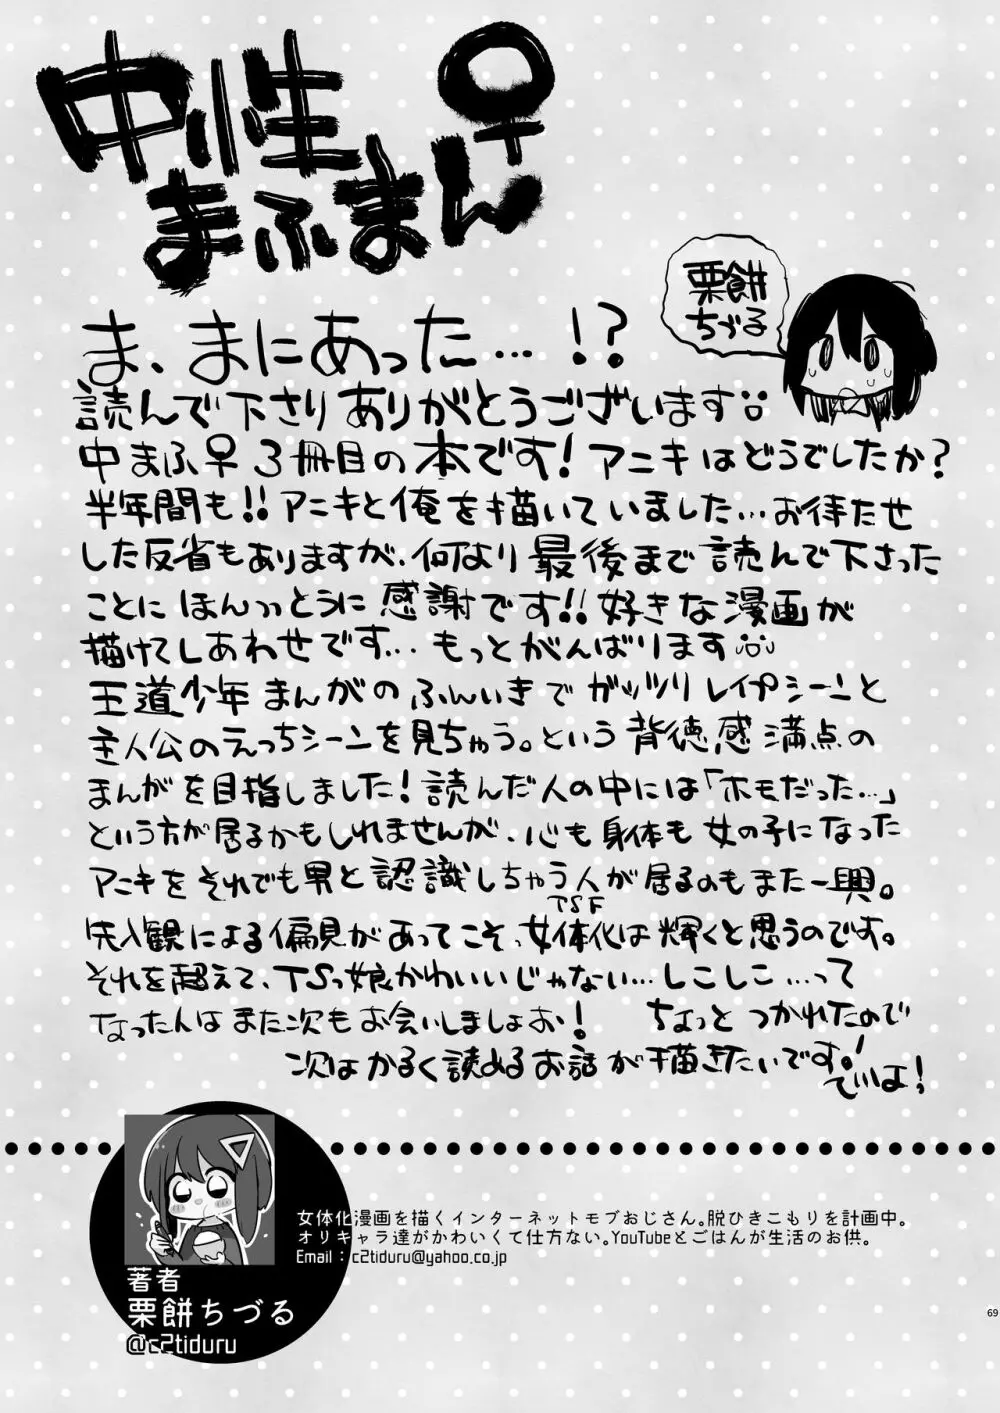 中性
まふまん♀
栗餅
ちづる
ま、まにあった…!?
読んで下さりありがとうございます
中まふ♀3冊目の本です!アニキはどうでしたか?
半年間も!!アニキと俺を描いていました…お待たせ
した反省もありますが、何より最後まで読んで下さった
ことにほんっっとうに感謝です!!好きな漫画が
描けてしあわせです…もっとがんばります
王道少年まんがのふんいきでガッツリレイプシーンと
主人公のえっちシーンを見ちゃう。という背徳感満点の
まんがを目指しました!読んだ人の中には「ホモだった…」
という方が居るかもしれませんが、心も身体も女の子になった
アニキをそれでも男と認識しちゃう人が居るのもまた一興。
TSF
先入観による偏見があってこそ、女体化は輝くと思うのです。
それを超えて、TSっ娘かわいいじゃない…しこしこ…って
なったんはまた次もお会いしましょお! ちょっとつかれたので
次はかるく読めるお話が描きたいです!
でいよ!
女体化漫画を描くインターネットモブおじさん。脱ひきこもりを計画中。
オリキャラ達がかわいくて仕方ない。YouTubeとごはんが生活のお供。
Email:c2tiduru@yahoo.co.jp
著者
栗餅ちづる
@c2tiduru
69